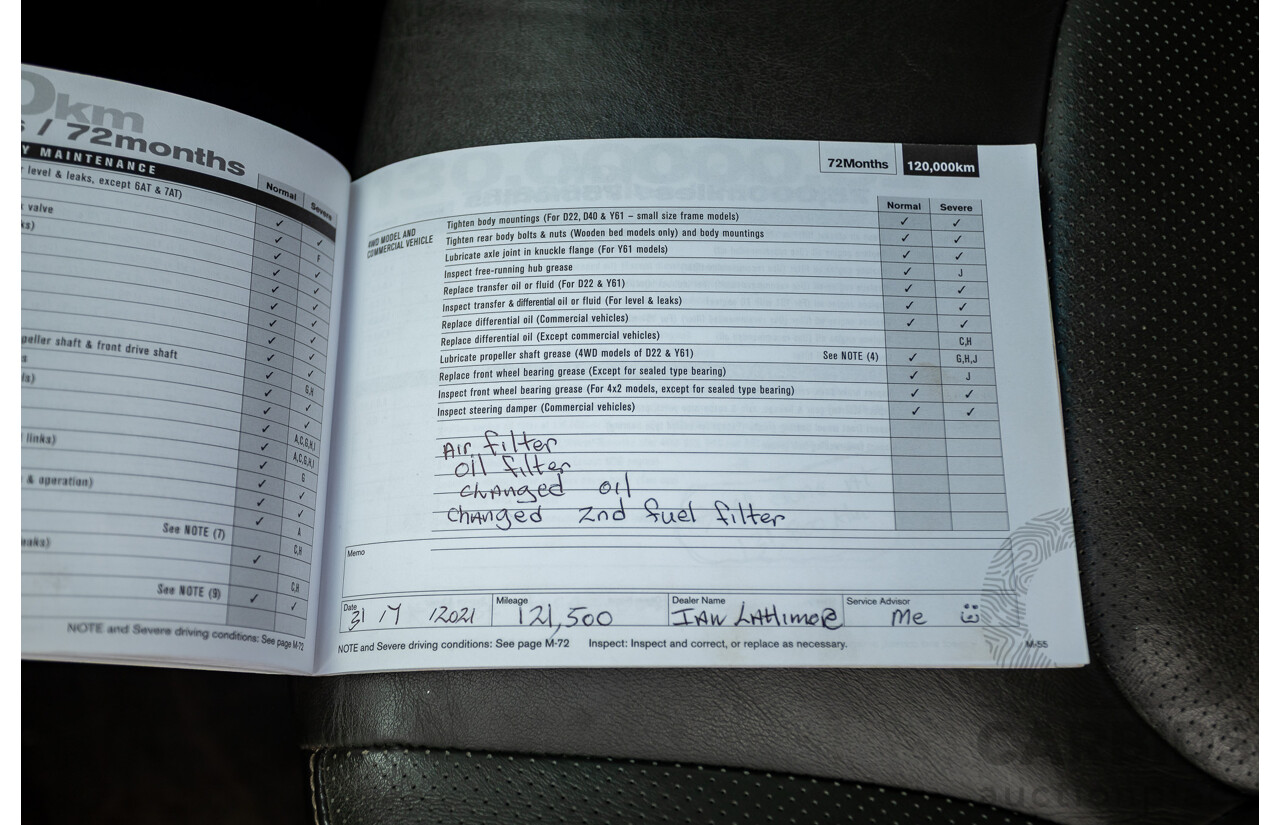 km
/ 72months
Y MAINTENANCE
Normal
Severe
level & leaks, except 6AT & 7AT)
✓
valve
✓ ✓
✓ F
✓ ✓
✓ ✓
✓ ✓
✓ ✓
✓ ✓
peller shaft & front drive shaft
✓ ✓
✓ G,H
✓ ✓
✓ ✓
✓ A,C,G,H,I
links)
✓ A,C,G,H,I
✓ G
& operation)
✓ ✓
✓ ✓
✓ A
See NOTE (7)
C,H
✓
C,H
See NOTE (9)
✓ ✓
NOTE and Severe driving conditions: See page M-72
72Months
120,000km
Normal
Severe
4WD MODEL AND
COMMERCIAL VEHICLE
Tighten body mountings (For D22, D40 & Y61 – small size frame models) ✓ ✓
Tighten rear body bolts & nuts (Wooden bed models only) and body mountings ✓ ✓
Lubricate axle joint in knuckle flange (For Y61 models) ✓ ✓
Inspect free-running hub grease ✓ J
Replace transfer oil or fluid (For D22 & Y61) ✓ ✓
Inspect transfer & differential oil or fluid (For level & leaks) ✓ ✓
Replace differential oil (Commercial vehicles) ✓ ✓
Replace differential oil (Except commercial vehicles) C,H
Lubricate propeller shaft grease (4WD models of D22 & Y61) See NOTE (4) ✓ G,H,J
Replace front wheel bearing grease (Except for sealed type bearing) ✓ J
Inspect front wheel bearing grease (For 4x2 models, except for sealed type bearing) ✓ ✓
Inspect steering damper (Commercial vehicles) ✓ ✓
Air filter
Oil filter
changed oil
changed 2nd fuel filter
Memo
Date 31 /7 /2021
Mileage 121,500
Dealer Name IAN LAthimoRe
Service Advisor Me
NOTE and Severe driving conditions: See page M-72 Inspect: Inspect and correct, or replace as necessary.
M-55